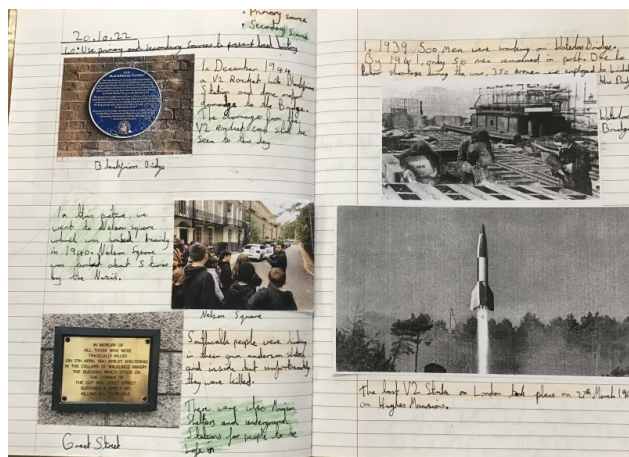 • Primary source
• Secondary source
20.10.22
LO: Use primary and secondary sources to present local history
In December 1944,
a V2 Rocket hit Blackfriars
Station and done major
damage to the Bridge.
The damage from the
V2 Rocket can still be
seen to this day
Blackfriars Bridge
In this picture, we
went to Nelson square
which was bombed heavily
in 1940. Nelson Square
was bombed about 5 times
by the Nazis.
Nelson Square
IN MEMORY OF
ALL THOSE WHO WERE
TRAGICALLY KILLED
ON 17TH APRIL 1941 WHILST SHELTERING
IN THE CELLARS OF
BAKERY
THE BUILDING WHICH STOOD ON
THE CORNER OF
THE CUT AND GREET STREET
SUFFERED A DIRECT HIT
KILLING 54 PEOPLE
Southwark people were hiding
in their own anderson shelters
and inside but unfortunately
they were killed.
There were also Morrison
Shelters and underground
Stations for people to be
safe in
Greet Street
1. 1939. 500 men were working on Waterloo Bridge.
By 1941, only 50 men remained in post. Due to
labour shortage during the war, 350 women were employed to build
the Bridge
Waterloo
Bridge
The last V2 Strike on London took place on 27th March 194
on Hughes Mansions.